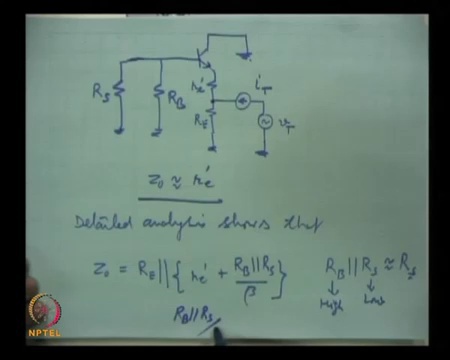 R_S
R_B
r_e'
R_E
i_T
v_T
Z_0 ≈ r_e'
Detailed analysis shows that
Z_0 = R_E || { r_e' + R_B||R_S / β } R_B || R_S ≈ R_S
High Low
R_B||R_S
NPTEL